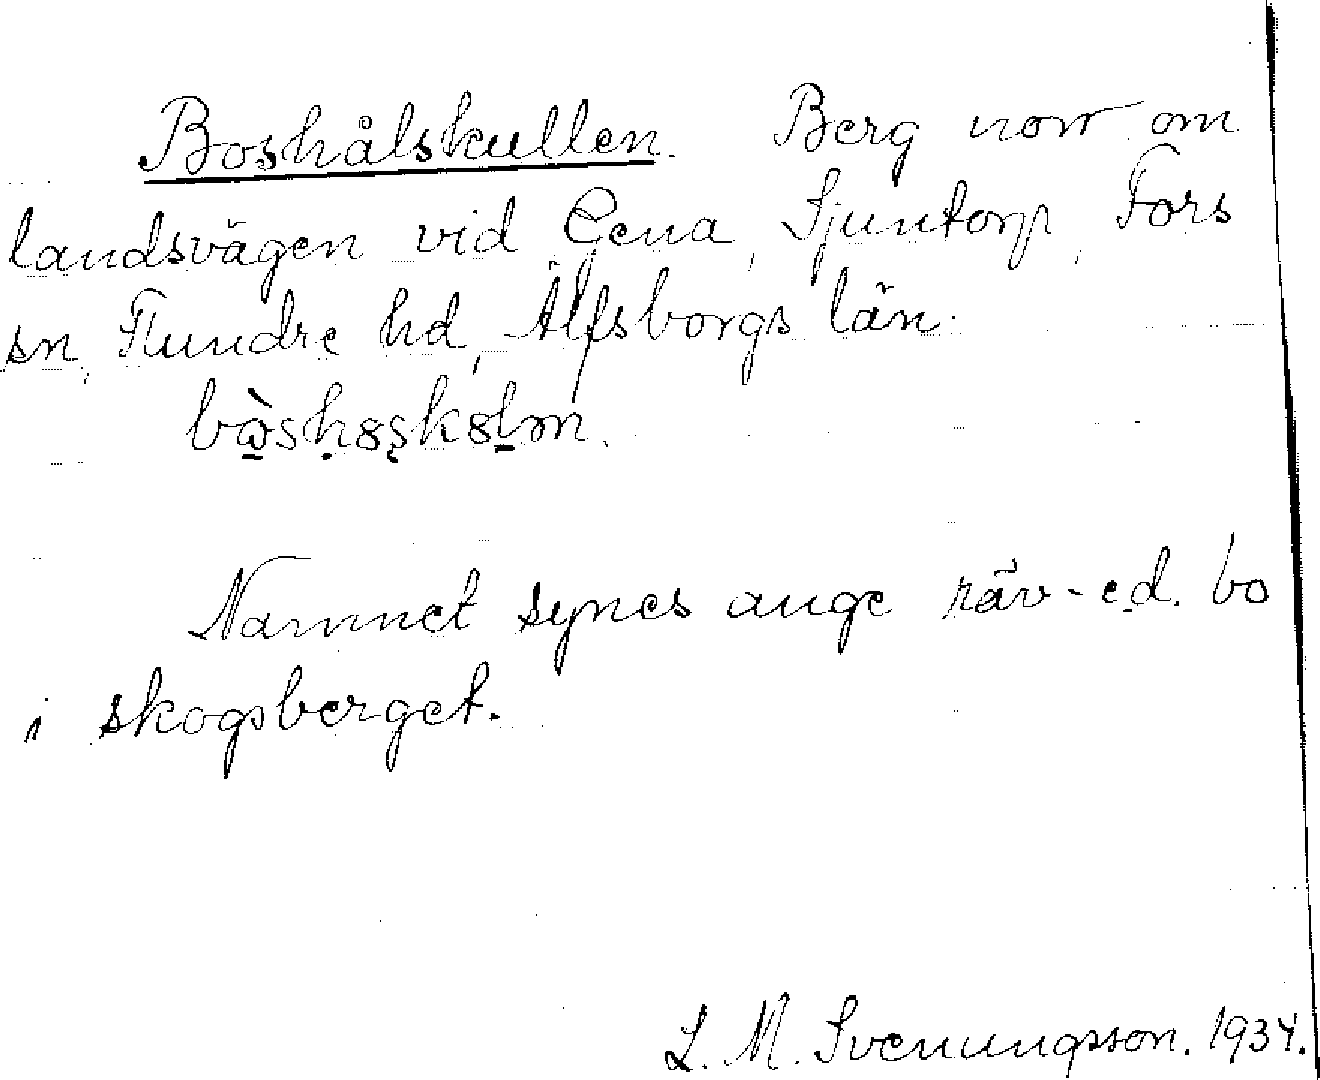 Boshålskullen. Berg norr om
landsvägen vid Gena, Sjuntorp, Fors
sn, Flundre hd, Älfsborgs län.
Namnet synes ange räv- e.d. bo
i skogsberget.
L. M. Svenungsson. 1934.